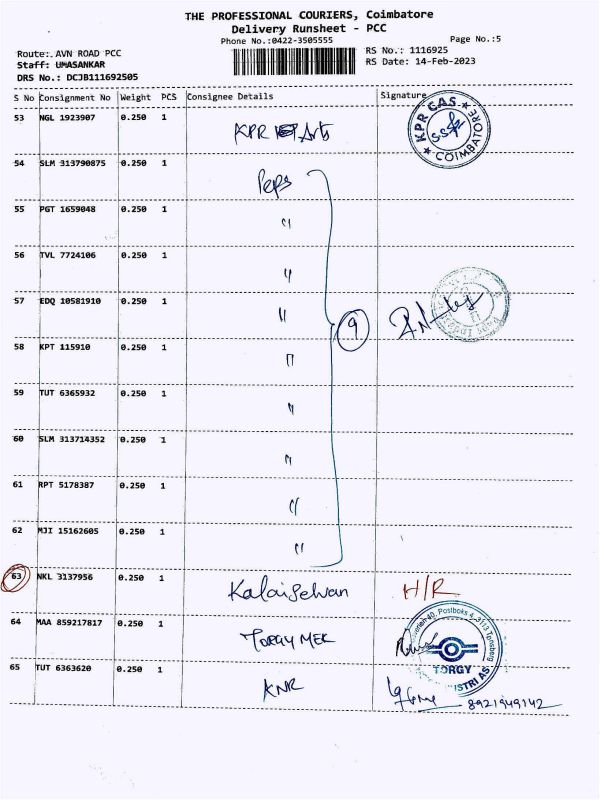 THE PROFESSIONAL COURIERS, Coimbatore
Delivery Runsheet - PCC
Phone No.:0422-3505555 Page No.:5
Route:.AVN ROAD PCC RS No.: 1116925
Staff: UMASANKAR RS Date: 14-Feb-2023
DRS No.: DCJB111692505
S No Consignment No Weight PCS Consignee Details Signature
53 NGL 1923907 0.250 1 KPR Arts KPR CAS COIMBATORE
54 SLM 313790875 0.250 1 Peps
55 PGT 1659048 0.250 1 "
56 TVL 7724106 0.250 1 "
57 EDQ 10581910 0.250 1 " 9
58 KPT 115910 0.250 1 "
59 TUT 6365932 0.250 1 "
60 SLM 313714352 0.250 1 "
61 RPT 5178387 0.250 1 "
62 MJI 15162605 0.250 1 "
63 NKL 3137956 0.250 1 Kalaiselvan H/R
64 MAA 859217817 0.250 1 TORGY MEK Postboks 4, 3113 Tønsberg TORGY
65 TUT 6363620 0.250 1 KNR 8921949142